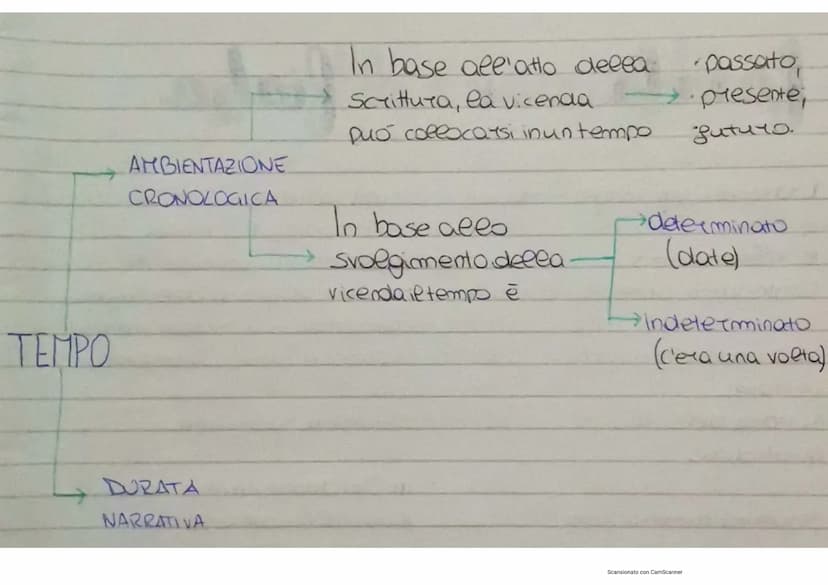 In base all'atto della
scrittura, la vicenda
può collocarsi in un tempo
· passato,
· presente,
· futuro.
AMBIENTAZIONE
CRONOLOGICA
In base allo
svolgimento della
vicenda il tempo è
determinato
(date)
indeterminato
(c'era una volta)
TEMPO
DURATA
NARRATIVA
Scansionato con CamScanner